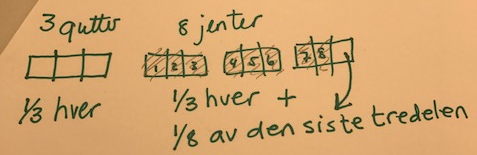 3 gutter
8 jenter
1 2 3 4 5 6 7 8
1/3 hver
1/3 hver +
1/8 av den siste tredelen